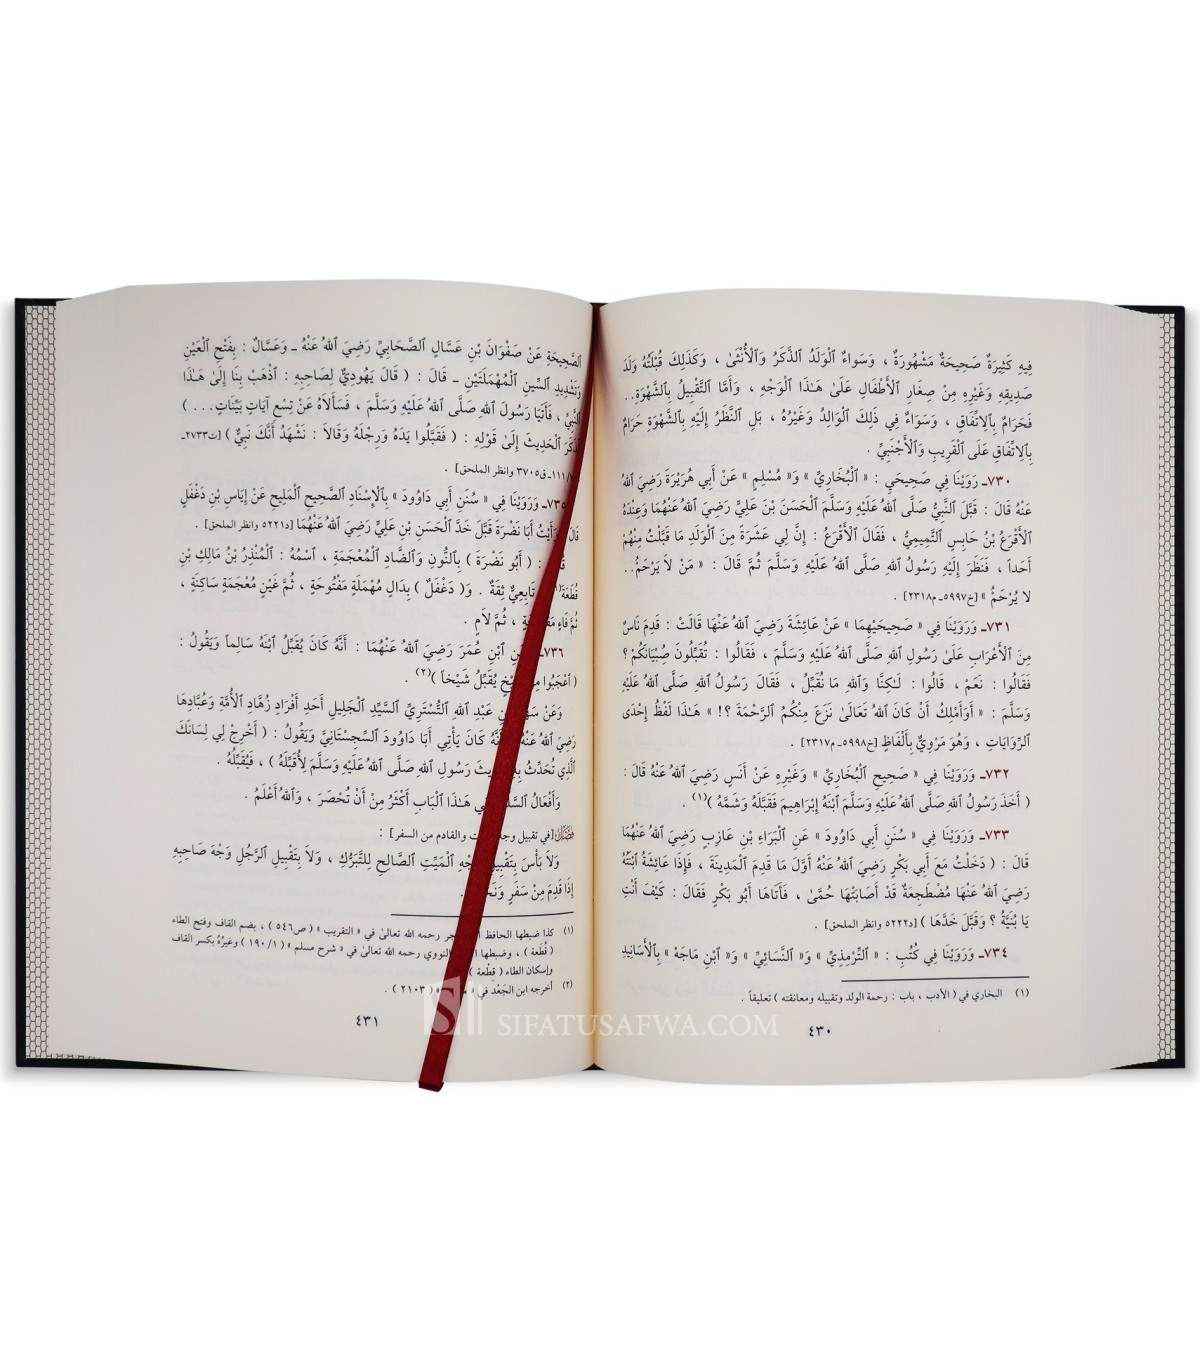 فِيهِ كَثِيرَةٌ صَحِيحَةٌ مَشْهُورَةٌ ، وَسَوَاءٌ ٱلْوَلَدُ ٱلذَّكَرُ وَٱلْأُنْثَىٰ ، وَكَذَلِكَ قُبْلَتُهُ وَلَدَ
صَدِيقِهِ وَغَيْرِهِ مِنْ صِغَارِ ٱلْأَطْفَالِ عَلَىٰ هَـٰذَا ٱلْوَجْهِ ، وَأَمَّا ٱلتَّقْبِيلُ بِٱلشَّهْوَةِ..
فَحَرَامٌ بِٱلِٱتِّفَاقِ ، وَسَوَاءٌ فِي ذَلِكَ ٱلْوَالِدُ وَغَيْرُهُ ، بَلِ ٱلنَّظَرُ إِلَيْهِ بِٱلشَّهْوَةِ حَرَامٌ
بِٱلِٱتِّفَاقِ عَلَى ٱلْقَرِيبِ وَٱلْأَجْنَبِيِّ .
٧٣٠ـ رَوَيْنَا فِي صَحِيحَيِ : « ٱلْبُخَارِيِّ » وَ« مُسْلِمٍ » عَنْ أَبِي هُرَيْرَةَ رَضِيَ ٱللهُ
عَنْهُ قَالَ : قَبَّلَ ٱلنَّبِيُّ صَلَّى ٱللهُ عَلَيْهِ وَسَلَّمَ ٱلْحَسَنَ بْنَ عَلِيٍّ رَضِيَ ٱللهُ عَنْهُمَا وَعِنْدَهُ
ٱلْأَقْرَعُ بْنُ حَابِسٍ ٱلتَّمِيمِيُّ ، فَقَالَ ٱلْأَقْرَعُ : إِنَّ لِي عَشَرَةً مِنَ ٱلْوَلَدِ مَا قَبَّلْتُ مِنْهُمْ
أَحَداً ، فَنَظَرَ إِلَيْهِ رَسُولُ ٱللهِ صَلَّى ٱللهُ عَلَيْهِ وَسَلَّمَ ثُمَّ قَالَ : « مَنْ لَا يَرْحَمُ..
لَا يُرْحَمُ » [خ٥٩٩٧ـ م٢٣١٨] .
٧٣١ـ وَرَوَيْنَا فِي « صَحِيحَيْهِمَا » عَنْ عَائِشَةَ رَضِيَ ٱللهُ عَنْهَا قَالَتْ : قَدِمَ نَاسٌ
مِنَ ٱلْأَعْرَابِ عَلَىٰ رَسُولِ ٱللهِ صَلَّى ٱللهُ عَلَيْهِ وَسَلَّمَ ، فَقَالُوا : تُقَبِّلُونَ صِبْيَانَكُمْ ؟
فَقَالُوا : نَعَمْ ، قَالُوا : لَـٰكِنَّا وَٱللهِ مَا نُقَبِّلُ ، فَقَالَ رَسُولُ ٱللهِ صَلَّى ٱللهُ عَلَيْهِ
وَسَلَّمَ : « أَوَأَمْلِكُ أَنْ كَانَ ٱللهُ تَعَالَىٰ نَزَعَ مِنْكُمُ ٱلرَّحْمَةَ ؟! » هَـٰذَا لَفْظُ إِحْدَى
ٱلرِّوَايَاتِ ، وَهُوَ مَرْوِيٌّ بِأَلْفَاظٍ [خ٥٩٩٨ـ م٢٣١٧] .
٧٣٢ـ وَرَوَيْنَا فِي « صَحِيحِ ٱلْبُخَارِيِّ » وَغَيْرِهِ عَنْ أَنَسٍ رَضِيَ ٱللهُ عَنْهُ قَالَ :
( أَخَذَ رَسُولُ ٱللهِ صَلَّى ٱللهُ عَلَيْهِ وَسَلَّمَ ٱبْنَهُ إِبْرَاهِيمَ فَقَبَّلَهُ وَشَمَّهُ )(١) .
٧٣٣ـ وَرَوَيْنَا فِي « سُنَنِ أَبِي دَاوُودَ » عَنِ ٱلْبَرَاءِ بْنِ عَازِبٍ رَضِيَ ٱللهُ عَنْهُمَا
قَالَ : ( دَخَلْتُ مَعَ أَبِي بَكْرٍ رَضِيَ ٱللهُ عَنْهُ أَوَّلَ مَا قَدِمَ ٱلْمَدِينَةَ ، فَإِذَا عَائِشَةُ ٱبْنَتُهُ
رَضِيَ ٱللهُ عَنْهَا مُضْطَجِعَةٌ قَدْ أَصَابَتْهَا حُمَّىٰ ، فَأَتَاهَا أَبُو بَكْرٍ فَقَالَ : كَيْفَ أَنْتِ
يَا بُنَيَّةُ ؟ وَقَبَّلَ خَدَّهَا ) [د٥٢٢٢ وانظر الملحق] .
٧٣٤ـ وَرَوَيْنَا فِي كُتُبِ : « ٱلتِّرْمِذِيِّ » وَ« ٱلنَّسَائِيِّ » وَ« ٱبْنِ مَاجَهْ » بِٱلْأَسَانِيدِ
(١) البخاري في ( الأدب ، باب : رحمة الولد وتقبيله ومعانقته ) تعليقاً .
٤٣٠
ٱلصَّحِيحَةِ عَنْ صَفْوَانَ بْنِ عَسَّالٍ ٱلصَّحَابِيِّ رَضِيَ ٱللهُ عَنْهُ ـ وَعَسَّالٌ : بِفَتْحِ ٱلْعَيْنِ
وَتَشْدِيدِ ٱلسِّينِ ٱلْمُهْمَلَتَيْنِ ـ قَالَ : ( قَالَ يَهُودِيٌّ لِصَاحِبِهِ : ٱذْهَبْ بِنَا إِلَىٰ هَـٰذَا
ٱلنَّبِيِّ ، فَأَتَيَا رَسُولَ ٱللهِ صَلَّى ٱللهُ عَلَيْهِ وَسَلَّمَ ، فَسَأَلَاهُ عَنْ تِسْعِ آيَاتٍ بَيِّنَاتٍ... )
ذَكَرَ ٱلْحَدِيثَ إِلَىٰ قَوْلِهِ : ( فَقَبَّلُوا يَدَهُ وَرِجْلَهُ وَقَالَا : نَشْهَدُ أَنَّكَ نَبِيٌّ ) [ت٢٧٣٣ـ
١١١/٧ـ ق٣٧٠٥ وانظر الملحق] .
٧٣٥ـ وَرَوَيْنَا فِي « سُنَنِ أَبِي دَاوُودَ » بِٱلْإِسْنَادِ ٱلصَّحِيحِ ٱلْمَلِيحِ عَنْ إِيَاسِ بْنِ دَغْفَلٍ
قَالَ رَأَيْتُ أَبَا نَضْرَةَ قَبَّلَ خَدَّ ٱلْحَسَنِ بْنِ عَلِيٍّ رَضِيَ ٱللهُ عَنْهُمَا [د٥٢٢١ وانظر الملحق] .
: ( أَبُو نَضْرَةَ ) بِٱلنُّونِ وَٱلضَّادِ ٱلْمُعْجَمَةِ ، ٱسْمُهُ : ٱلْمُنْذِرُ بْنُ مَالِكِ بْنِ
قُطَعَةَ تَابِعِيٌّ ثِقَةٌ . وَ( دَغْفَلٌ ) بِدَالٍ مُهْمَلَةٍ مَفْتُوحَةٍ ، ثُمَّ غَيْنٍ مُعْجَمَةٍ سَاكِنَةٍ ،
ثُمَّ فَاءٍ ، ثُمَّ لَامٍ .
٧٣٦ـ ٱبْنِ عُمَرَ رَضِيَ ٱللهُ عَنْهُمَا : أَنَّهُ كَانَ يُقَبِّلُ ٱبْنَهُ سَالِماً وَيَقُولُ :
( ٱعْجَبُوا يُقَبِّلُ شَيْخاً )(٢) .
وَعَنْ عَبْدِ ٱللهِ ٱلتُّسْتَرِيِّ ٱلسَّيِّدِ ٱلْجَلِيلِ أَحَدِ أَفْرَادِ زُهَّادِ ٱلْأُمَّةِ وَعُبَّادِهَا
رَضِيَ ٱللهُ عَنْهُ أَنَّهُ كَانَ يَأْتِي أَبَا دَاوُودَ ٱلسِّجِسْتَانِيَّ وَيَقُولُ : ( أَخْرِجْ لِي لِسَانَكَ
ٱلَّذِي تُحَدِّثُ بِهِ حَدِيثَ رَسُولِ ٱللهِ صَلَّى ٱللهُ عَلَيْهِ وَسَلَّمَ لِأُقَبِّلَهُ ) ، فَيُقَبِّلُهُ .
وَأَفْعَالُ فِي هَـٰذَا ٱلْبَابِ أَكْثَرُ مِنْ أَنْ تُحْصَرَ ، وَٱللهُ أَعْلَمُ .
[في تقبيل والقادم من السفر] :
وَلَا بَأْسَ بِتَقْبِيلِ وَجْهِ ٱلْمَيِّتِ ٱلصَّالِحِ لِلتَّبَرُّكِ ، وَلَا بِتَقْبِيلِ ٱلرَّجُلِ وَجْهَ صَاحِبِهِ
إِذَا قَدِمَ مِنْ سَفَرٍ .
(١) كذا ضبطها الحافظ رحمه الله تعالىٰ في « التقريب » ( ص٥٤٦ ) ، بضم القاف وفتح الطاء
( قُطَعَة ) ، وضبطها النووي رحمه الله تعالىٰ في « شرح مسلم » ( ١٩٠/١ ) وغيرُهُ بكسر القاف
وإسكان الطاء ( قِطْعة )
(٢) أخرجه ابن الجَعْد في ( ٢١٠٣ ) .
٤٣١
SIFATUSAFWA.COM